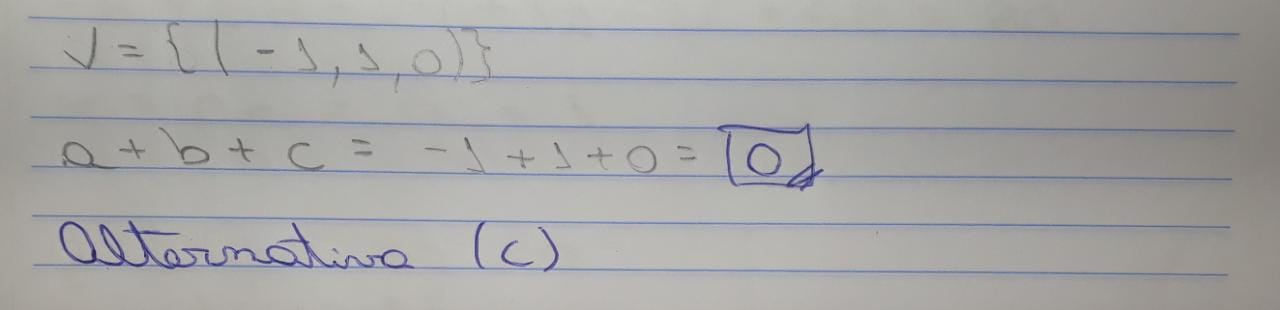 V = {(-1, 1, 0)}
a + b + c = -1 + 1 + 0 = 0
Alternativa (c)